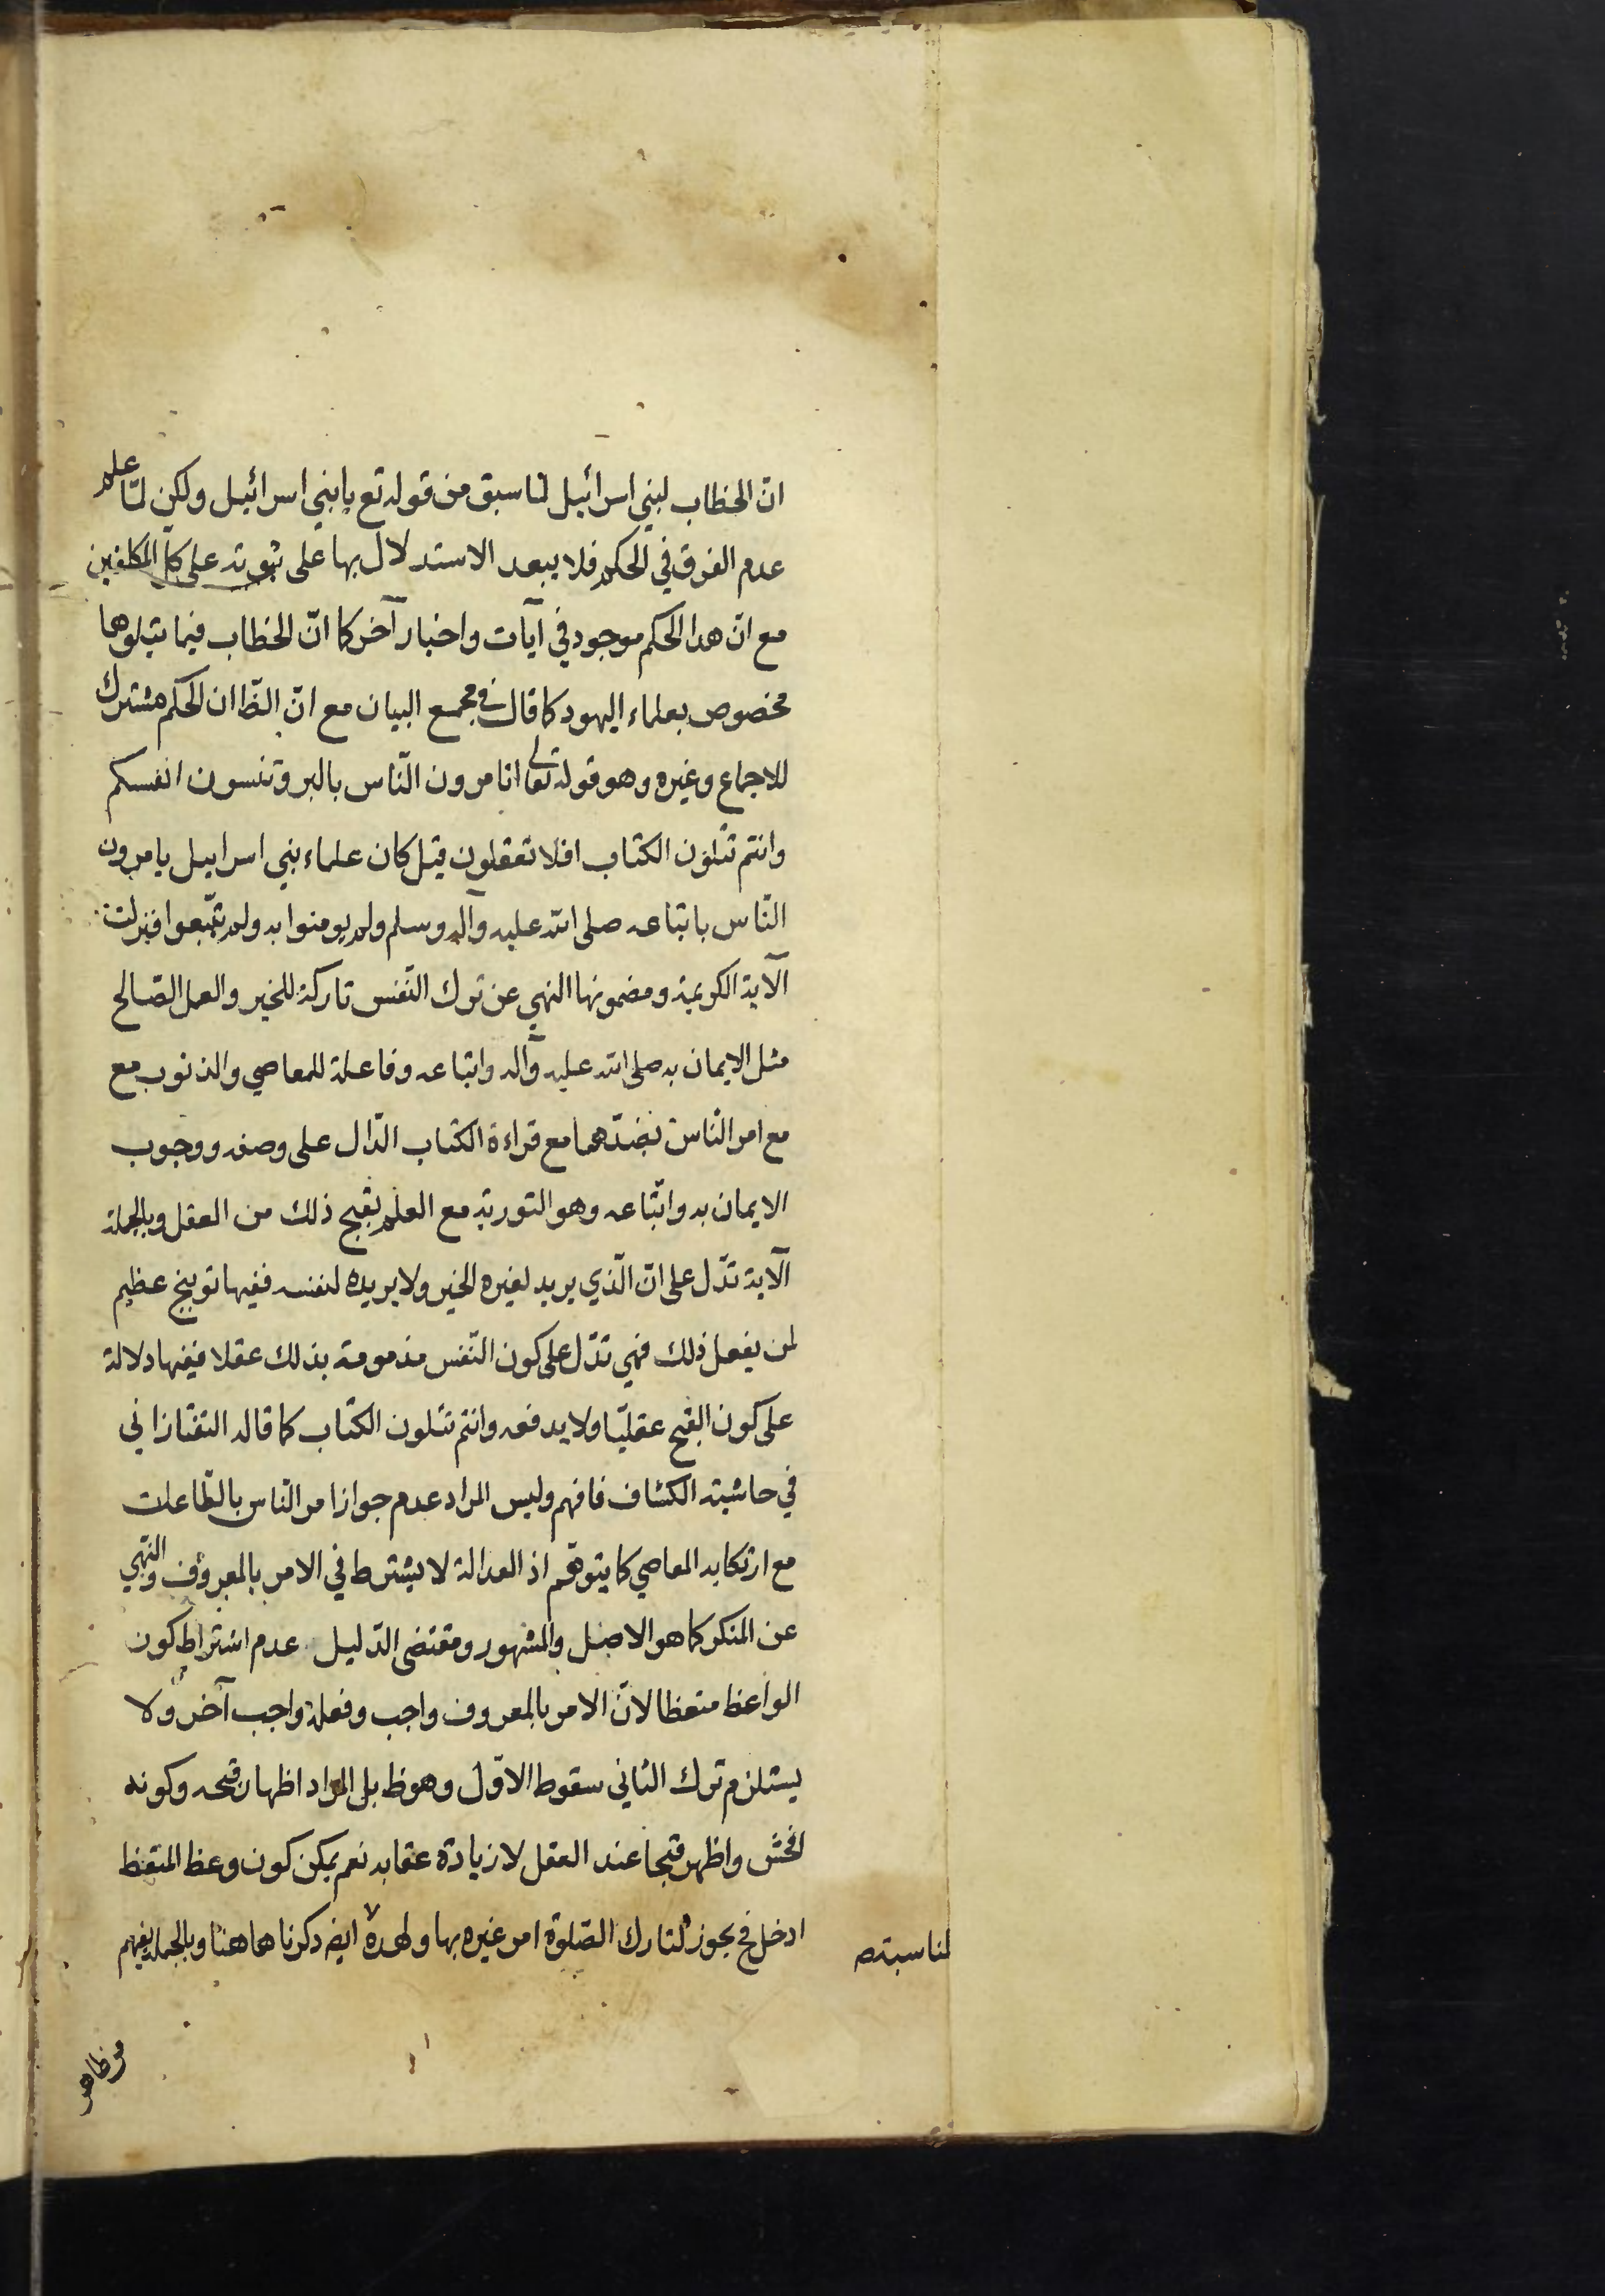 انّ الخطاب لبني اسرائيل لما سبق من قوله تع يا بني اسرائيل ولكن لمّا علم
عدم الفرق في الحكم فلا يبعد الاستدلال بها على ثبوته على كل المكلفين
مع انّ هذا الحكم موجود في آيات واخبار آخر كما انّ الخطاب فيما يتلوها
مخصوص بعلماء اليهود كما قال في مجمع البيان مع انّ الظّ ان الحكم مشترك
للاجماع وغيره وهو قوله تعالى اتامرون النّاس بالبر وتنسون انفسكم
وانتم تتلون الكتاب افلا تعقلون قيل كان علماء بني اسرايل يامرون
النّاس باتباعه صلى الله عليه وآله وسلم ولم يومنوا به ولم يتّبعوا فنزلت
الآية الكريمة ومضمونها النهي عن ترك النّفس تاركة للخير والعمل الصّالح
مثل الايمان به صلى الله عليه وآله واتباعه وفاعلة للمعاصي والذنوب مع
مع امر النّاس بضدّهما مع قراءة الكتاب الدّال على وصفه ووجوب
الايمان به واتّباعه وهو التورية مع العلم بقبح ذلك من العقل وبالجملة
الآية تدّل على انّ الّذي يريد لغيره الخير ولا يريده لنفسه ففيها توبيخ عظيم
لمن يفعل ذلك فهي تدّل على كون النّفس مذمومة بذلك عقلا ففيها دلالة
على كون القبح عقليّا ولا يدفعه وانتم تتلون الكتاب كما قاله التفتازاني
في حاشيته الكشاف فافهم وليس المراد عدم جواز امر النّاس بالطّاعات
مع ارتكابه المعاصي كما يتوهّم اذ العدالة لا يشترط في الامر بالمعروف والنّهي
عن المنكر كما هو الاصل والمشهور ومقتضى الدّليل عدم اشتراط كون
الواعظ متعظا لانّ الامر بالمعروف واجب وفعله واجب آخر ولا
يستلزم ترك الثاني سقوط الاوّل وهو ظ بل المراد اظهار قبحه وكونه
افحش واظهر قبحا عند العقل لا زيادة عقابه نعم يمكن كون وعظ المتعظ
ادخل فح يجوز لتارك الصّلوة امر غيره بها ولهذه ايض ذكرناها هنا وبالجملة يفهم
لمناسبة صح
من ظاهر